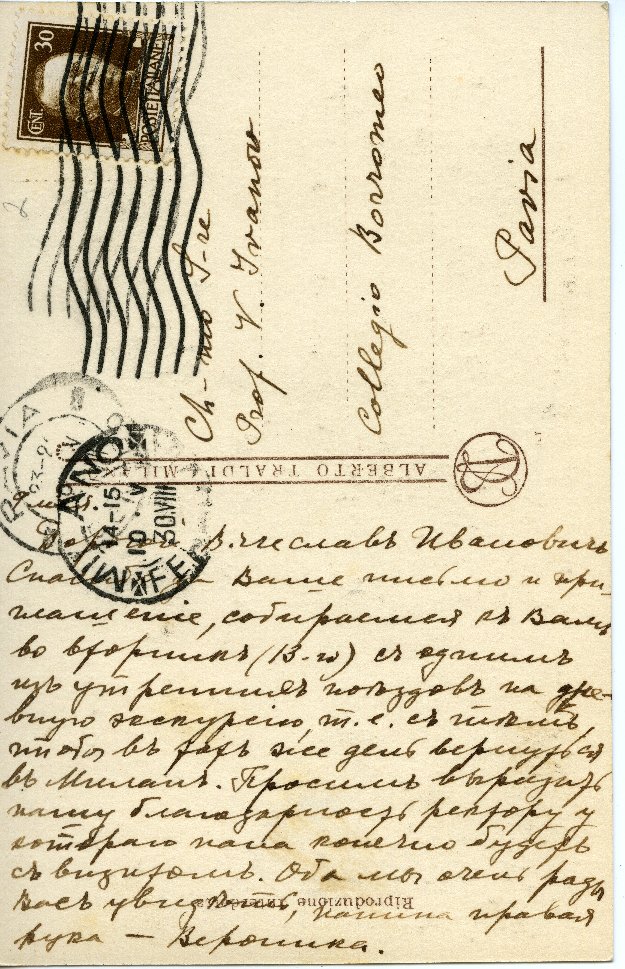 CENT. 30
POSTE ITALIANE
Ch-mo S-re
Prof. V. Ivanow
Collegio Borromeo
Pavia
ALBERTO TRALDI MIL
PAVIA
MILANO
14-15
19 V
30.VIII
FE
Вячеславъ Ивановичъ
Ваше письмо и при-
глашенiе, собираемся къ Вамъ
во вторникъ (13-го) съ однимъ
изъ утреннихъ поѣздовъ на дне-
вную экскурсiю, т.е. съ тѣмъ,
чтобы въ тотъ же день вернуться
въ Миланъ. Просимъ выразить
нашу благодарность ректору у
котораго папа конечно будетъ
съ визитомъ. Оба мы очень рады
Васъ увидѣть, папина правая
рука — Вероника.
Riproduzione